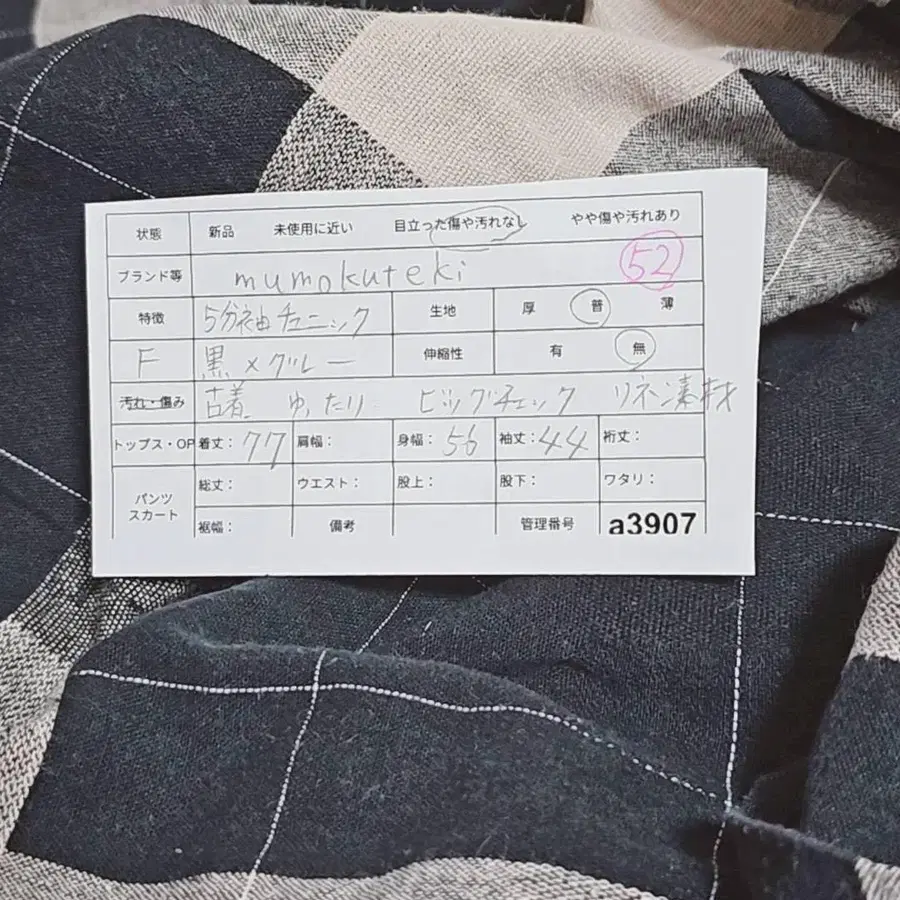 状態 新品 未使用に近い 目立った傷や汚れなし やや傷や汚れあり
ブランド等 mumokuteki 52
特徴 5分袖チュニック 生地 厚 普 薄
F 黒×グレー 伸縮性 有 無
汚れ・傷み 古着 ゆったり ビッグチェック リネン素材
トップス・OP 着丈：77 肩幅： 身幅：56 袖丈：44 裄丈：
パンツ スカート 総丈： ウエスト： 股上： 股下： ワタリ：
裾幅： 備考 管理番号 a3907